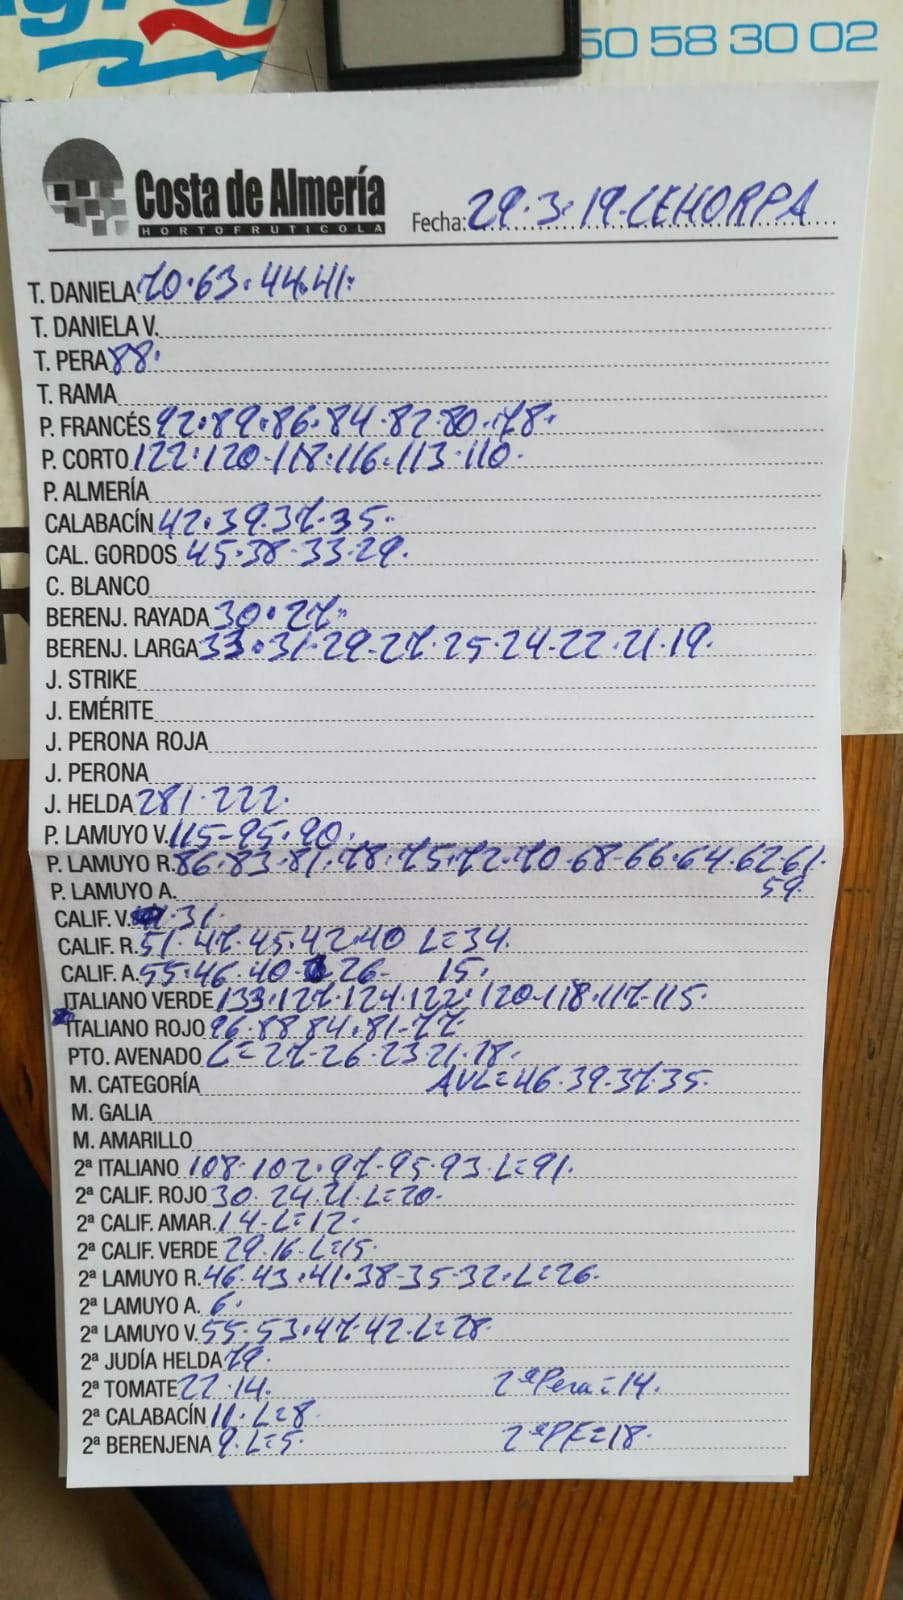 50 58 30 02
Costa de Almería
HORTOFRUTICOLA
Fecha: 29.3.19.CEHORPA
T. DANIELA 70.63.44.41.
T. DANIELA V.
T. PERA 88.
T. RAMA
P. FRANCÉS 92.89.86.84.82.80.78.
P. CORTO 122.120-118.116.113.110.
P. ALMERÍA
CALABACÍN 42.39.37.35.
CAL. GORDOS 45.38.33.29.
C. BLANCO
BERENJ. RAYADA 30.27.
BERENJ. LARGA 33.31-29-27.25-24-22.21.19.
J. STRIKE
J. EMÉRITE
J. PERONA ROJA
J. PERONA
J. HELDA 281.222.
P. LAMUYO V. 115-95.90.
P. LAMUYO R. 86.83.81.78.75.72.70-68-66.64.62.61.
59.
P. LAMUYO A.
CALIF. V. 31.
CALIF. R. 51.47.45.42.40 L=34.
CALIF. A. 55.46.40- 26- 15.
ITALIANO VERDE 133.127.124.122.120-118.117-115.
ITALIANO ROJO 96.88.84.81-77.
PTO. AVENADO L=27-26.23.21.18.
M. CATEGORÍA AVL=46.39.37.35.
M. GALIA
M. AMARILLO
2ª ITALIANO 108-102.97-95.93.L=91.
2ª CALIF. ROJO 30.24.21.L=20.
2ª CALIF. AMAR. 14-L=12.
2ª CALIF. VERDE 29.16-L=15.
2ª LAMUYO R. 46.43.41.38-35-32.L=26.
2ª LAMUYO A. 6.
2ª LAMUYO V. 55-53.47.42.L=28.
2ª JUDÍA HELDA 79.
2ª TOMATE 22.14. 2ªPera=14.
2ª CALABACÍN 11.L=8.
2ª BERENJENA 9.L=5. 2ªPF=18.